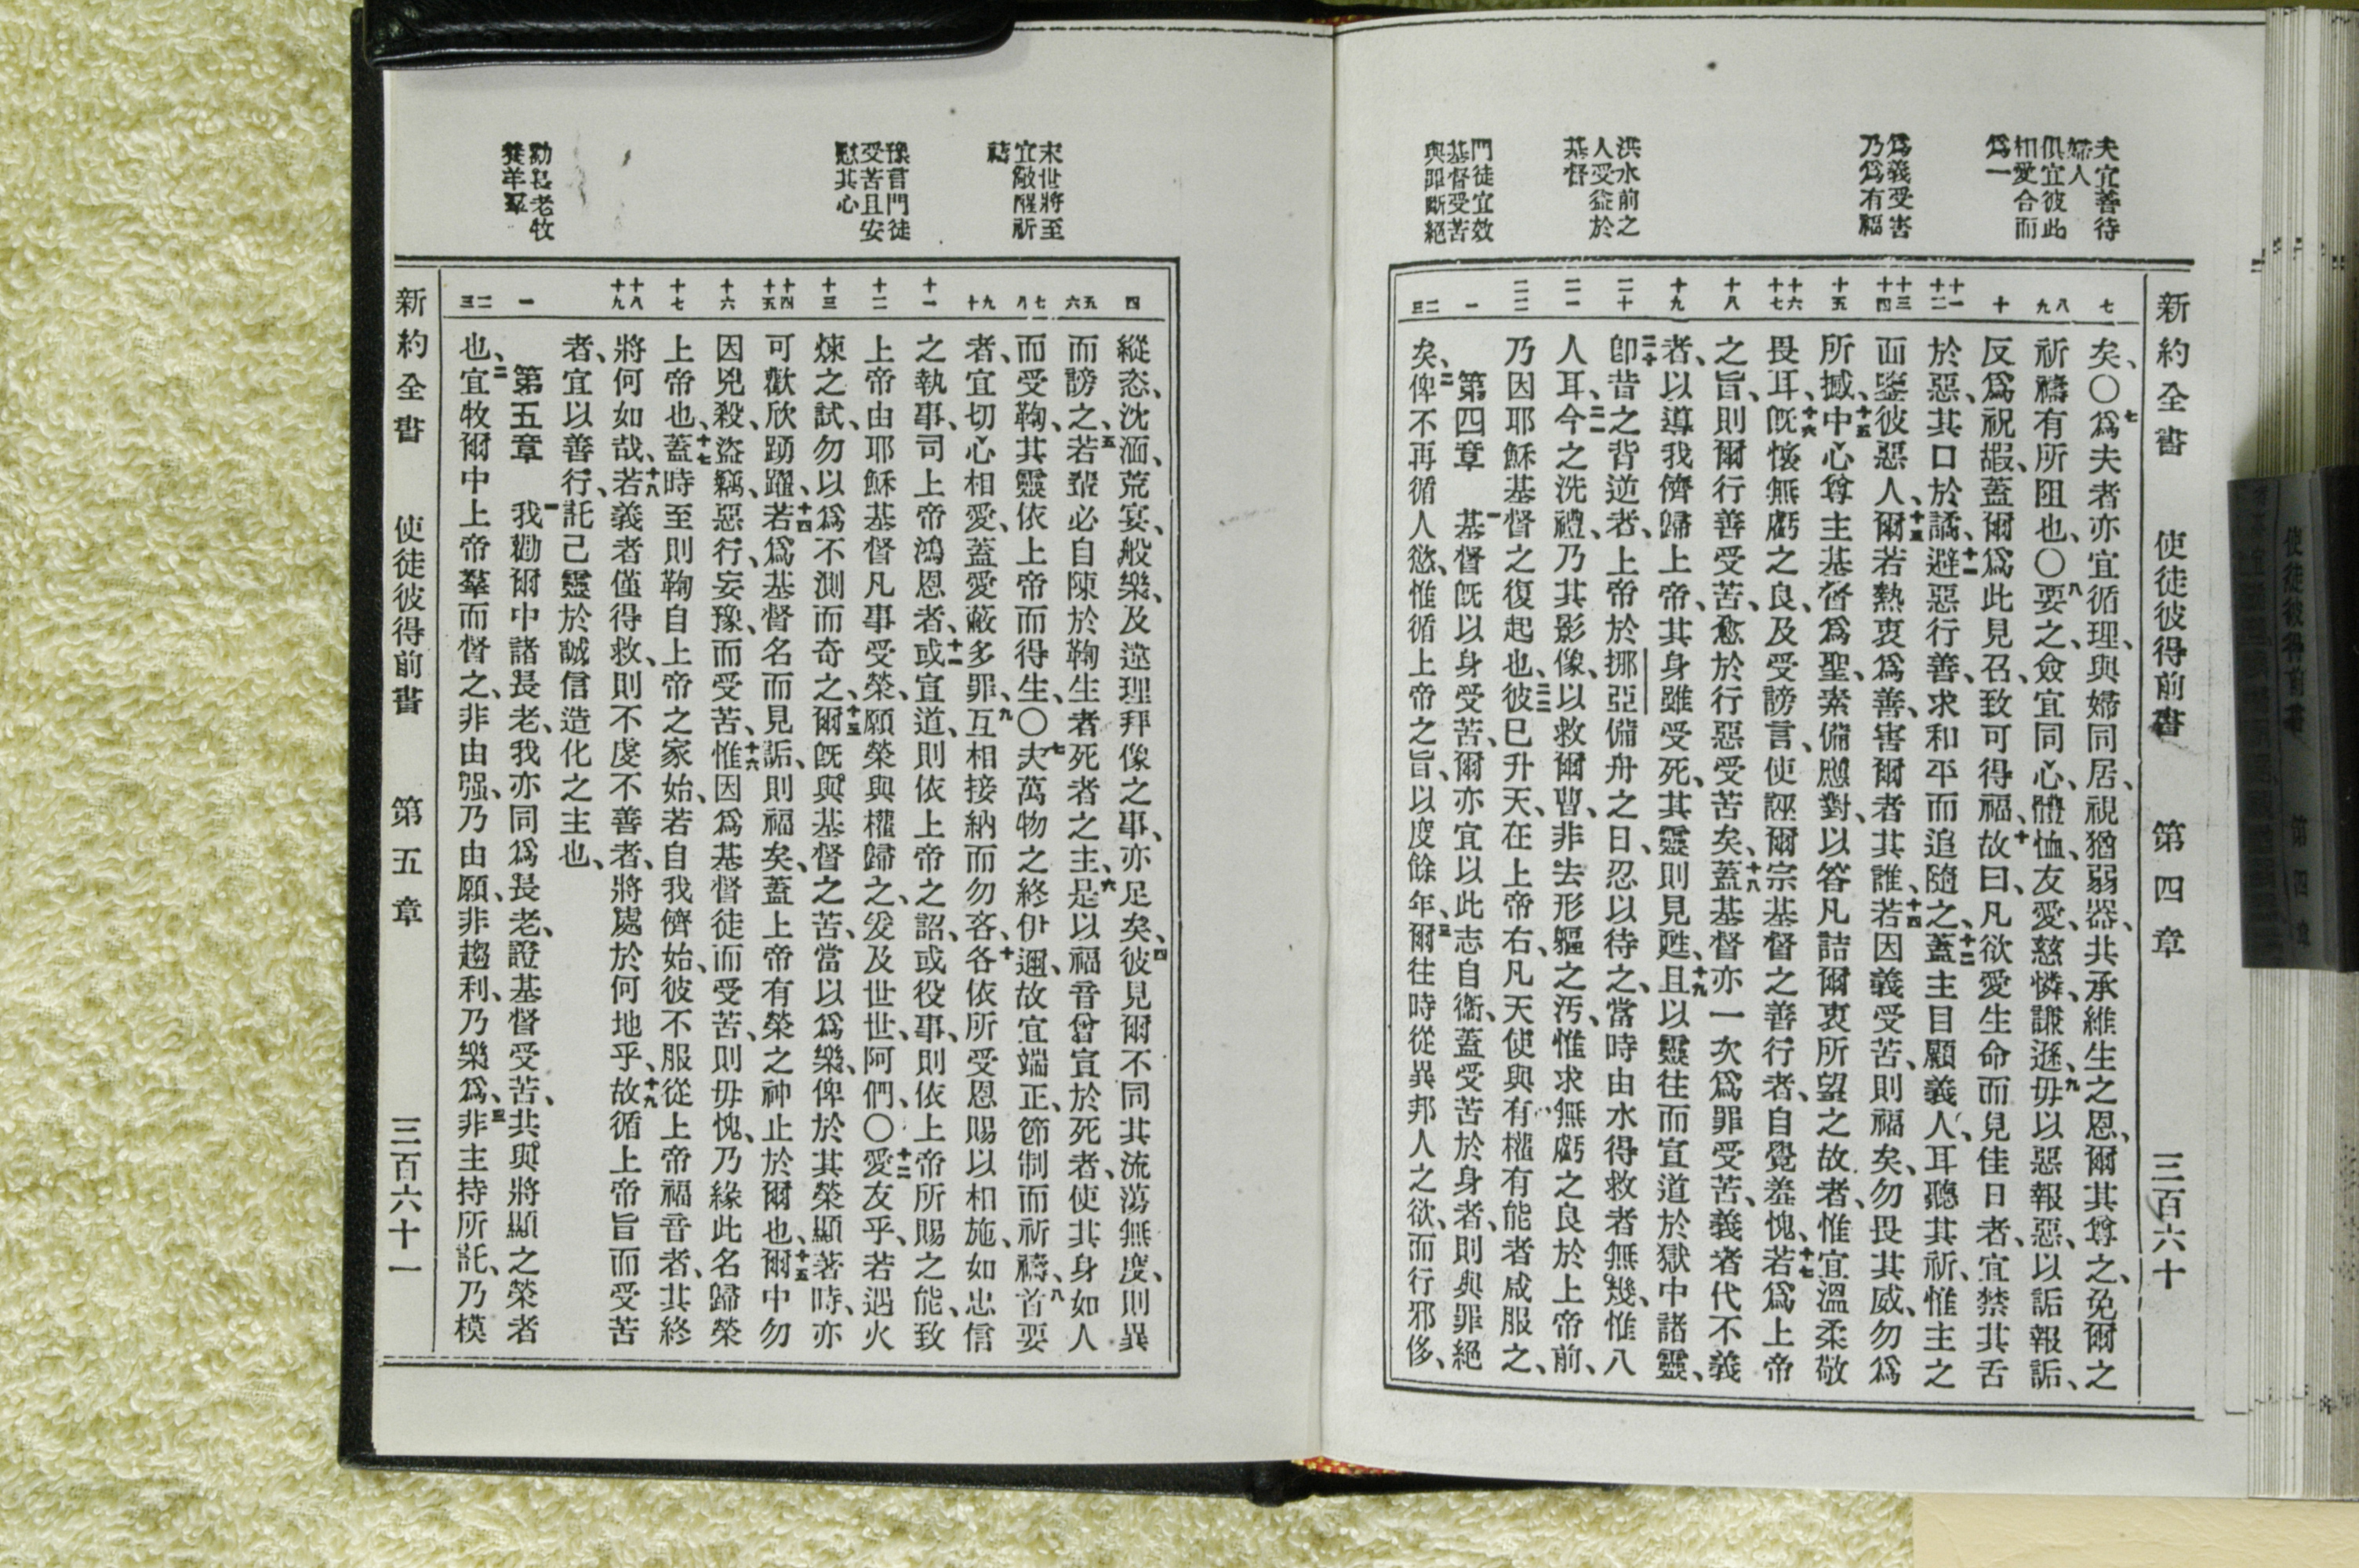 新約全書 使徒彼得前書 第四章 三百六十
夫宜善待
婦人
俱宜彼此
相愛合而
爲一
爲義受害
乃爲有福
洪水前之
人受益於
基督
門徒宜效
基督受苦
與罪斷絕
七
八 九
十
十一 十二
十三 十四
十五
十六 十七
十八
十九
二十
二一
二二
一
二 三
矣、〇七爲夫者亦宜循理、與婦同居、視猶弱器、共承維生之恩、爾其尊之、免爾之
祈禱有所阻也、〇八要之、僉宜同心、體恤、友愛、慈憐、謙遜、九毋以惡報惡、以詬報詬、
反爲祝嘏、蓋爾爲此見召、致可得福、十故曰、凡欲愛生命而見佳日者、宜禁其舌
於惡、其口於譎、十一避惡行善、求和平而追隨之、十二蓋主目顧義人、耳聽其祈、惟主之
面鑒彼惡人、十三爾若熱衷爲善、害爾者其誰、十四若因義受苦、則福矣、勿畏其威、勿爲
所撼、十五中心尊主基督爲聖、素備應對、以答凡詰爾衷所望之故者、惟宜溫柔敬
畏耳、十六旣懷無虧之良、及受謗言、使誣爾宗基督之善行者、自覺羞愧、十七若爲上帝
之旨、則爾行善受苦、愈於行惡受苦矣、十八蓋基督亦一次爲罪受苦、義者代不義
者、以導我儕歸上帝、其身雖受死、其靈則見甦、十九且以靈往而宣道於獄中諸靈、
二十卽昔之背逆者、上帝於挪亞備舟之日、忍以待之、當時由水得救者無幾、惟八
人耳、二一今之洗禮、乃其影像、以救爾曹、非去形軀之汚、惟求無虧之良於上帝前、
乃因耶穌基督之復起也、二二彼已升天、在上帝右、凡天使與有權有能者咸服之、
第四章 一基督旣以身受苦、爾亦宜以此志自衞、蓋受苦於身者、則與罪絕
矣、二俾不再循人慾、惟循上帝之旨、以度餘年、三爾往時從異邦人之欲、而行邪侈、
末世將至
宜儆醒祈
禱
豫言門徒
受苦且安
慰其心
勸長老牧
養羊羣
四
五 六
七 八
九 十
十一
十二
十三
十四 十五
十六
十七
十八 十九
一
二 三
縱恣、沈湎、荒宴、般樂、及違理拜像之事、亦足矣、四彼見爾不同其流蕩無度、則異
而謗之、五若輩必自陳於鞫生者死者之主、六是以福音曾宣於死者、使其身如人
而受鞫、其靈依上帝而得生、〇七夫萬物之終伊邇、故宜端正、節制而祈禱、八首要
者、宜切心相愛、蓋愛蔽多罪、九互相接納而勿吝、十各依所受恩賜以相施、如忠信
之執事、司上帝鴻恩者、十一或宣道、則依上帝之詔、或役事、則依上帝所賜之能、致
上帝由耶穌基督凡事受榮、願榮與權歸之、爰及世世、阿們、〇十二愛友乎、若遇火
煉之試、勿以爲不測而奇之、十三爾旣與基督之苦、當以爲樂、俾於其榮顯著時、亦
可歡欣踴躍、十四若爲基督名而見詬、則福矣、蓋上帝有榮之神止於爾也、十五爾中勿
因兇殺、盜竊、惡行、妄豫、而受苦、十六惟因爲基督徒而受苦、則毋愧、乃緣此名歸榮
上帝也、十七蓋時至則鞫自上帝之家始、若自我儕始、彼不服從上帝福音者、其終
將何如哉、十八若義者僅得救、則不虔不善者、將處於何地乎、十九故循上帝旨而受苦
者、宜以善行、託己靈於誠信造化之主也、
第五章 一我勸爾中諸長老、我亦同爲長老、證基督受苦、共與將顯之榮者
也、二宜牧爾中上帝羣而督之、非由强、乃由願、非趨利、乃樂爲、三非主持所託、乃模
新約全書 使徒彼得前書 第五章 三百六十一